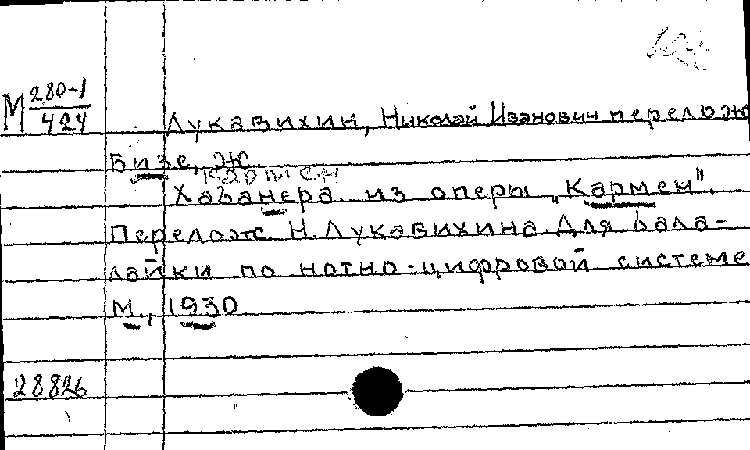 М 280-1
424
Лукавихин, Николай Иванович перелож
Бизе, Ж.
Кармен
Хабанера из оперы „Кармен".
Перелож Н. Лукавихина для бала-
лайки по нотно-цифровой системе
М., 1930
28826